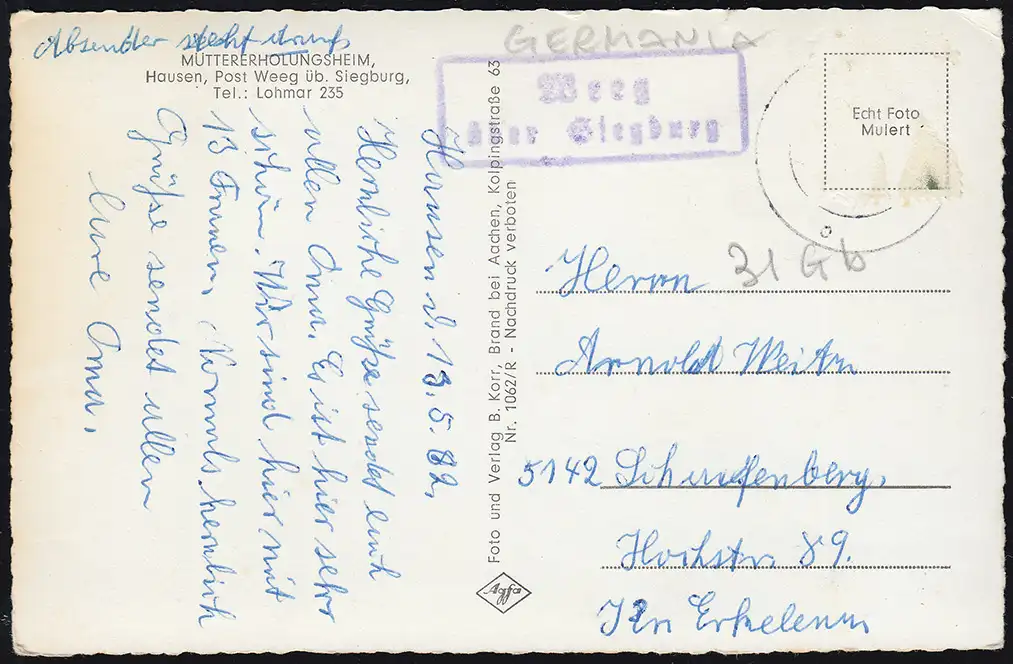 Absender steht drauf
MÜTTERERHOLUNGSHEIM,
Hausen, Post Weeg üb. Siegburg,
Tel.: Lohmar 235
Hausen d. 13.5.62.
Herzliche Grüße sendet Euch
allen Oma. Es ist hier sehr
schön. Wir sind hier mit
13 Frauen. Vormals herzlich
Grüße sendet allen
Eure Oma.
Foto und Verlag B. Korr, Brand bei Aachen, Kolpingstraße 63
Nr. 1062/R - Nachdruck verboten
Agfa
GERMANIA
Weeg
über Siegburg
Echt Foto
Mulert
31 Gb
Herrn
Arnold Weitz
5142 Schaufenberg,
Hochstr. 89.
Krs Erkelenz